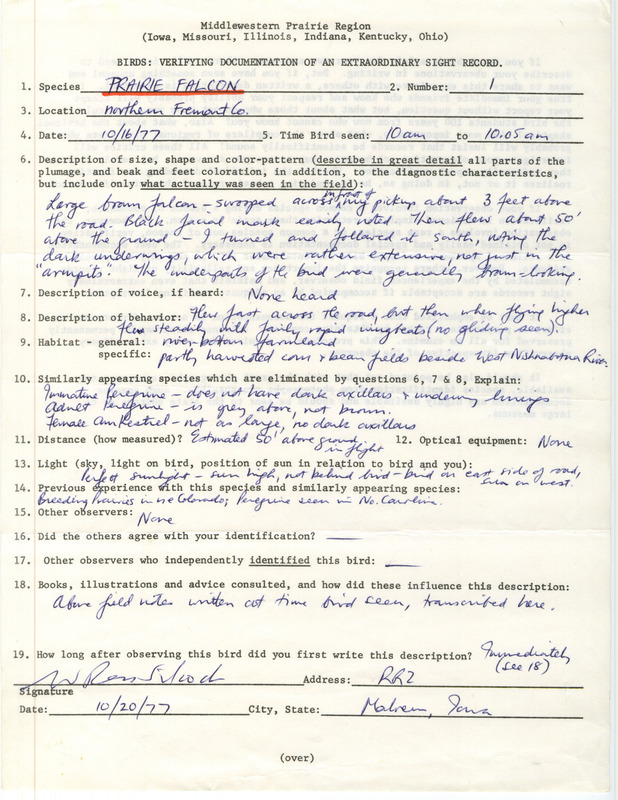 Middlewestern Prairie Region
(Iowa, Missouri, Illinois, Indiana, Kentucky, Ohio)
BIRDS: VERIFYING DOCUMENTATION OF AN EXTRAORDINARY SIGHT RECORD.
1. Species PRAIRIE FALCON 2. Number: 1
3. Location northern Fremont Co.
4. Date: 10/16/77 5. Time Bird seen: 10 am to 10.05 am
6. Description of size, shape and color-pattern (describe in great detail all parts of the
plumage, and beak and feet coloration, in addition, to the diagnostic characteristics,
but include only what actually was seen in the field):
Large brown falcon - swooped across in front of my pickup about 3 feet above
the road. Black facial mask easily noted. Then flew about 50'
above the ground - I turned and followed it south, noting the
dark underwings, which were rather extensive, not just in the
"armpits". The underparts of the bird were generally brown-looking.
7. Description of voice, if heard: None heard
8. Description of behavior: Flew fast across the road, but then when flying higher
flew steadily with fairly rapid wingbeats (no gliding seen).
9. Habitat - general: river-bottom farmland
specific: partly harvested corn & bean fields beside West Nishnabotna River.
10. Similarly appearing species which are eliminated by questions 6, 7 & 8, Explain:
Immature Peregrine - does not have dark axillars & underwing linings
Adult Peregrine - is grey above, not brown.
Female Am Kestrel - not as large, no dark axillars
11. Distance (how measured)? Estimated 50' above ground in flight 12. Optical equipment: None
13. Light (sky, light on bird, position of sun in relation to bird and you):
Perfect sunlight - sun high, not behind bird - bird on east side of road, sun on west.
14. Previous experience with this species and similarly appearing species:
Breeding Prairies in Colorado; Peregrine seen in No. Carolina.
15. Other observers: None
16. Did the others agree with your identification? —
17. Other observers who independently identified this bird: —
18. Books, illustrations and advice consulted, and how did these influence this description:
Above field notes written at time bird seen, transcribed here.
19. How long after observing this bird did you first write this description? Immediately
(see 18)
W Ross Silcock Address: RR2
Signature
Date: 10/20/77 City, State: Malvern, Iowa
(over)